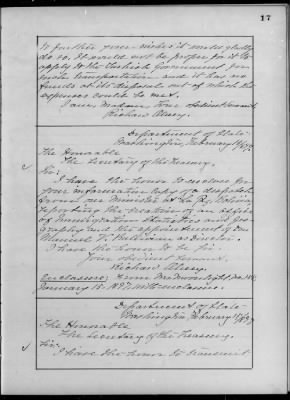 17
to further your wishes it would gladly
do so. It would not be proper for it to
apply to the Turkish Government for
such transportation and it has no
funds at its disposal out of which the
expenses could be met.
I am, Madam, Your obedient servant,
Richard Olney.
Department of State
Washington, February
The Honorable
The Secretary of the Treasury.
Sir:
I have the honor to enclose for
your information copy of a despatch
from our Minister at La Paz, Bolivia,
reporting the creation of an office
of Immigration Statistics and Geo-
graphy and the appointment of Don
Manuel V. Ballivian as director.
I have the honor to be, Sir,
Your obedient servant,
Richard Olney.
Enclosure: From
January 15, 1897, with enclosure.
Department of State
Washington, February
The Honorable
The Secretary of the Treasury.
Sir:
I have the honor to transmit